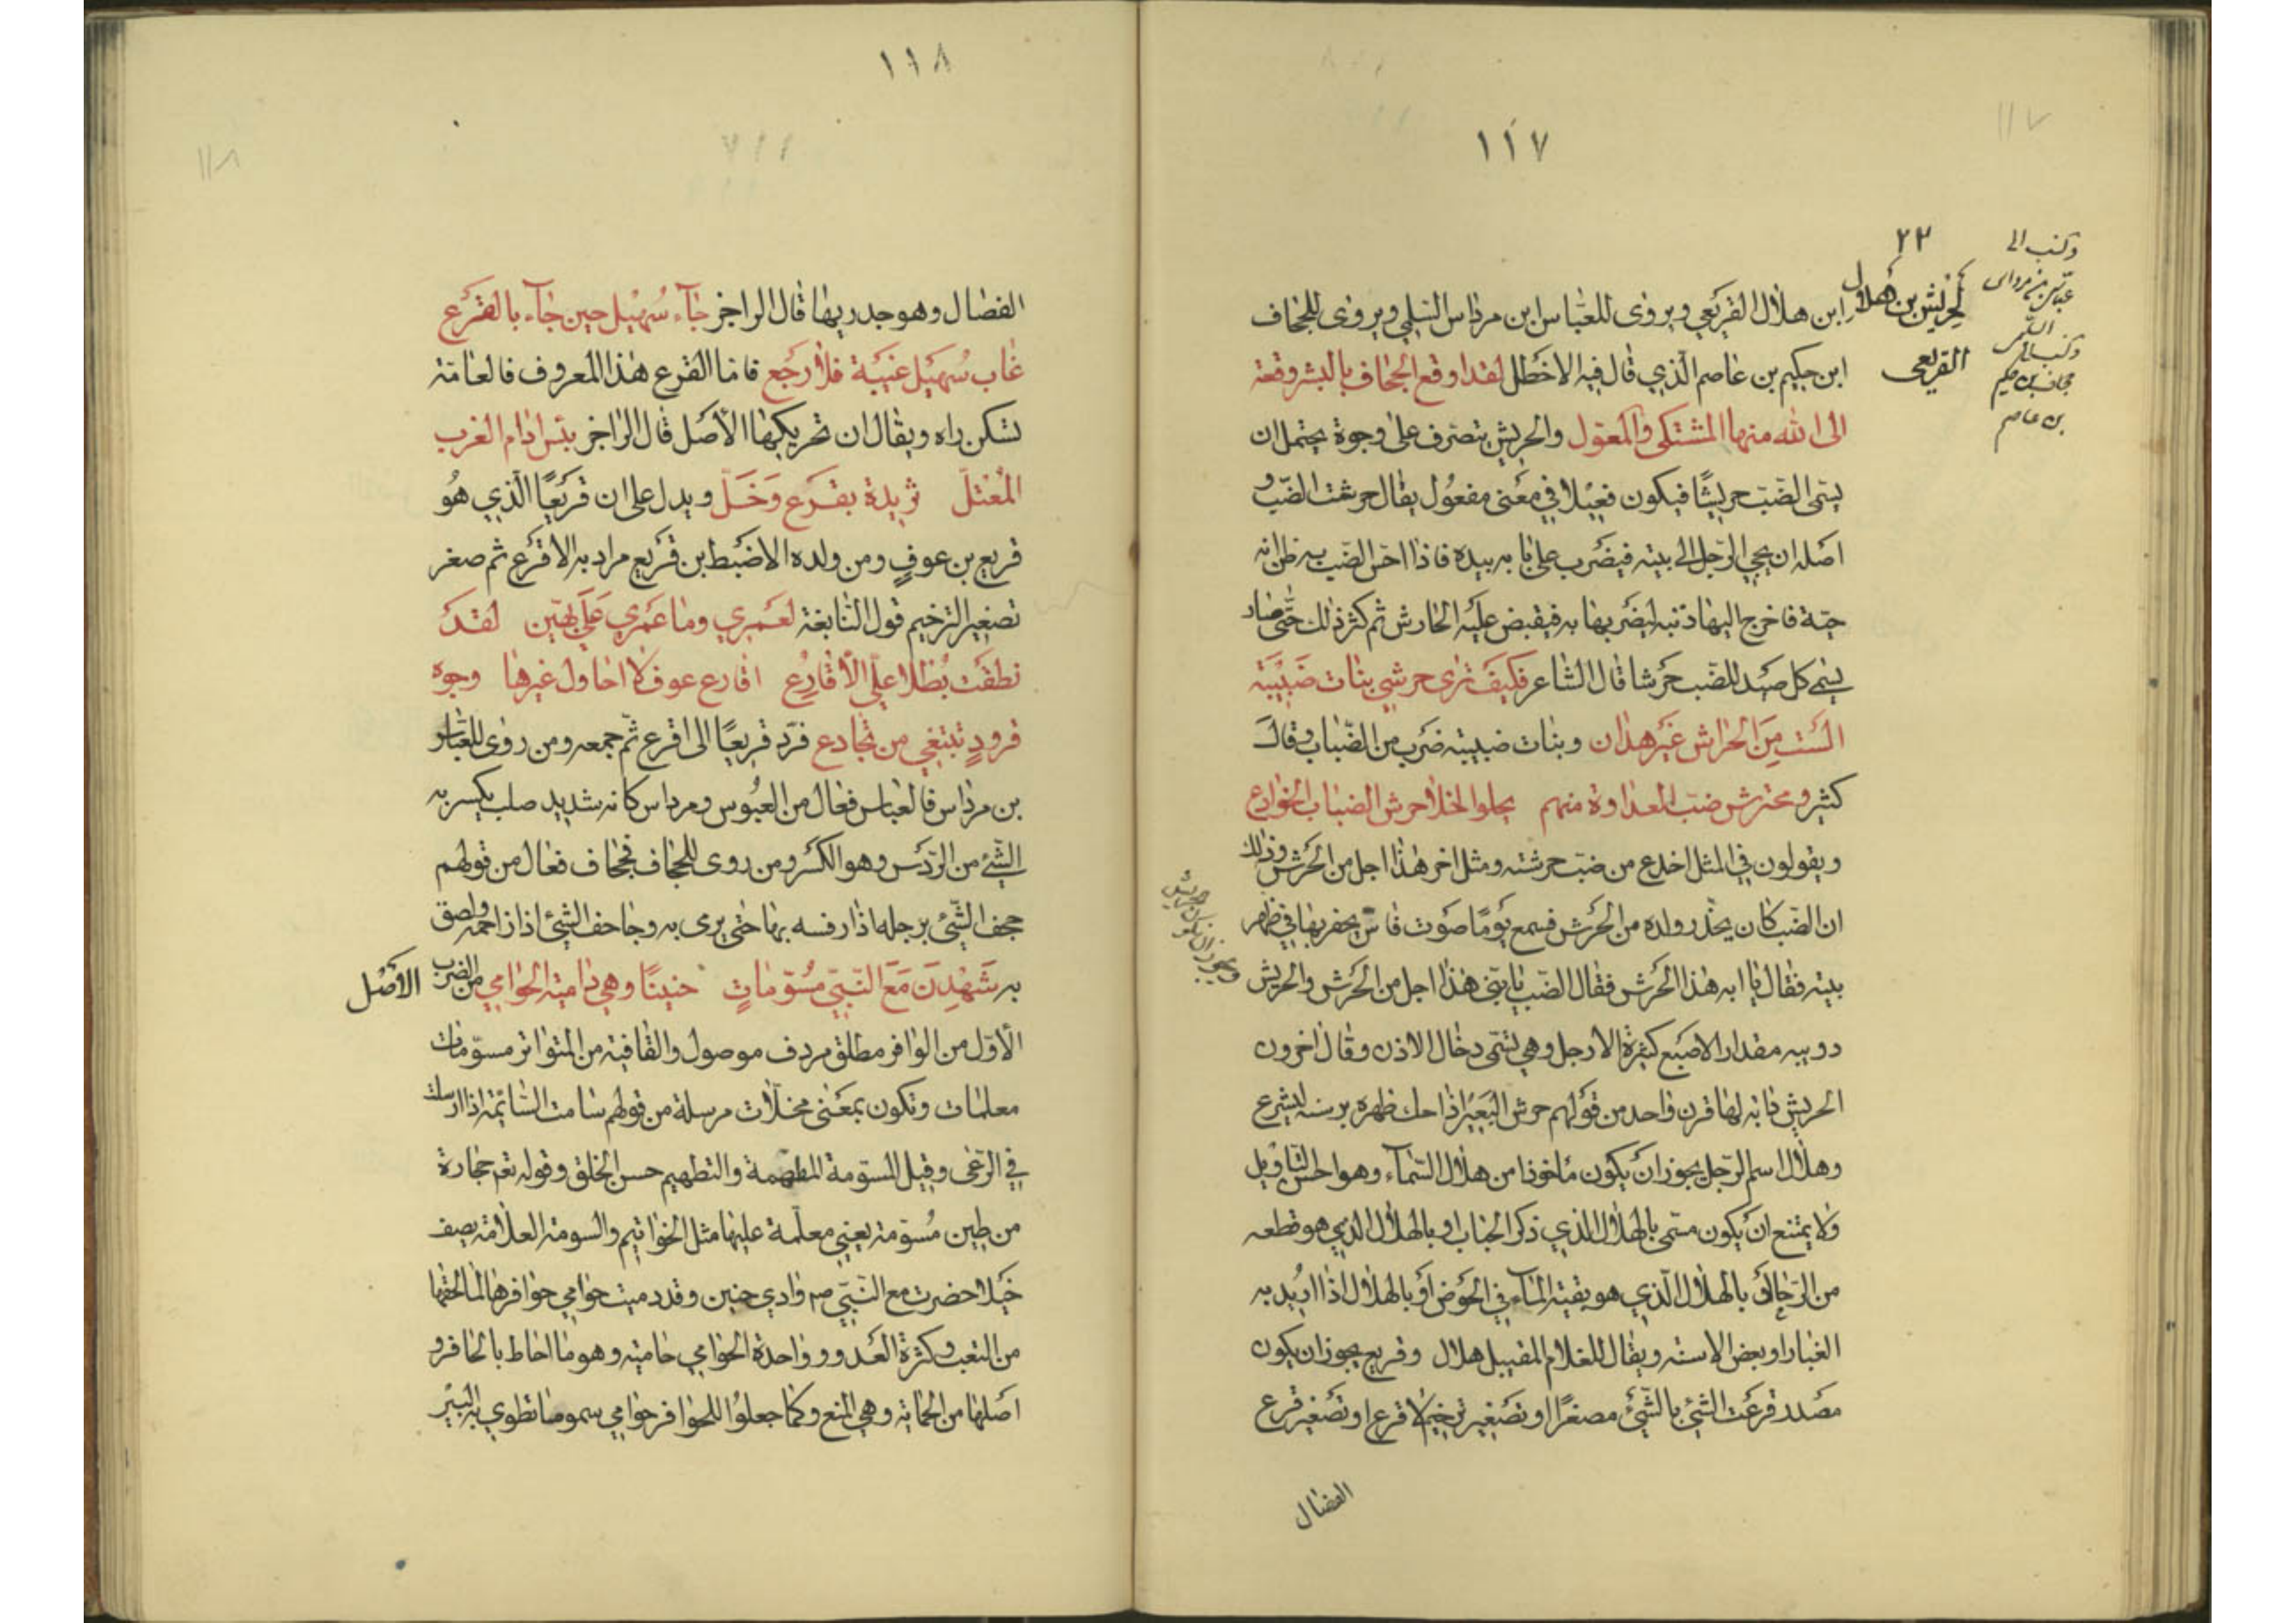 ١١٧
٢٣
وكتب الى
عباس بن مرداس
وكتب
بن حكيم
بن عاصم
لحريش بن هلال
القريعى
ابن هلال القريعي ويروى للعباس ابن مرداس السلمي ويروى للجحاف
ابن حكيم بن عاصم الذي قال فيه الاخطل لقد اوقع الجحاف بالبشر وقعة
الى الله منها المشتكى والمعول والحريش يتصرف على وجوة يحتمل ان
يسمى الضب حريشا فيكون فعيلا في معنى مفعول يقال حرشت الضب و
اصله ان يجي الرجل الى بيته فيضرب على بابه بيده فاذا احس الضب به ظن انه
حية فاخرج اليها ذنبه ليضربها به فيقبض عليه الحارش ثم كثر ذلك حتى صار
يسمى كل صيد للضب حرشا قال الشاعر فكيف ترى حرشي بنات ضبيبة
الست من الحراش غير هدان وبنات ضبيبة ضرب من الضباب وقال
كثير ومحترش ضب العداوة منهم بحلو الخلا حرش الضباب الخوادع
ويقولون في المثل اخدع من ضب حرشته ومثل اخر هذا اجل من الحرش وذلك
ان الضب كان يحذر ولده من الحرش فسمع يوما صوت فاس يحفر بها في ظهر
بيته فقال يا ابه هذا الحرش فقال الضب يا بني هذا اجل من الحرش والحريش
ويجوز ان يكون حريش
دويبه مقدار الاصبع كثيرة الارجل وهي تسمى دخال الاذن وقال اخرون
الحريش دابه لها قرن واحد من قولهم حرش البعير اذا حك ظهره برسنه ليسرع
وهلال اسم الرجل يجوز ان يكون ماخوذا من هلال السماء وهو احسن التاويل
ولا يمتنع ان يكون مسمى بالهلال الذي ذكر الحباب او بالهلال الذي هو قطعه
من الرحا او بالهلال الذي هو بقية الماء في الحوض او بالهلال اذا اريد به
الغبار او بعض الاسنه ويقال للغلام المقبيل هلال وقريع يجوز ان يكون
مصدر قرعت الشئ بالشئ مصغرا او تصغير ترخيم لاقرع او تصغير قرع
الفصال
١١٨
الفصال وهو جدريها قال الراجز جاء سهيل حين جاء بالقرع
غاب سهيل غيبة فلا رجع فاما القرع هذا المعروف فالعامة
تسكن راه ويقال ان تحريكها الأصل قال الراجز بئس ادام العزب
المعتل ثريدة بقرع وخل ويدل على ان قريعا الذي هو
قريع بن عوف ومن ولده الاضبط بن قريع مراد به الاقرع ثم صغر
تصغير الترخيم قول النابغة لعمري وما عمري علي بهين لقد
نطقت بطلا علي الأقارع اقارع عوف لا احاول غيرها وجوه
قرود تبتغي من تجادع فرد قريعا الى اقرع ثم جمعه ومن روى للعباس
بن مرداس فالعباس فعال من العبوس ومرداس كانه شديد صلب يكسر به
الشئ من الردس وهو الكسر ومن روى للجحاف فجحاف فعال من قولهم
جحف الشئ برجله اذا رفسه بها حتى يرمى به وجاحف الشئ اذا زاحمه ولصق
به شهدن مع النبي مسومات حنينا وهي دامية الحوامي من الضرب الأصل
الأول من الوافر مطلق مردف موصول والقافية من المتواتر مسومات
معلمات وتكون بمعنى مخلات مرسلة من قولهم سامت السائمة اذا ارسلت
في الرعى وقيل المسومة المطهمة والتطهيم حسن الخلق وقوله تعم حجارة
من طين مسومة يعني معلمة عليها مثل الخواتيم والسومة العلامة يصف
خيلا حضرت مع النبي صم وادي حنين وقد دميت حوامي حوافرها لما لحقها
من التعب وكثرة العدو وواحدة الحوامي حامية وهو ما احاط بالحافر و
اصلها من الحماية وهي المنع وكما جعلوا للحوافر حوامي سموما تطوي به البئر